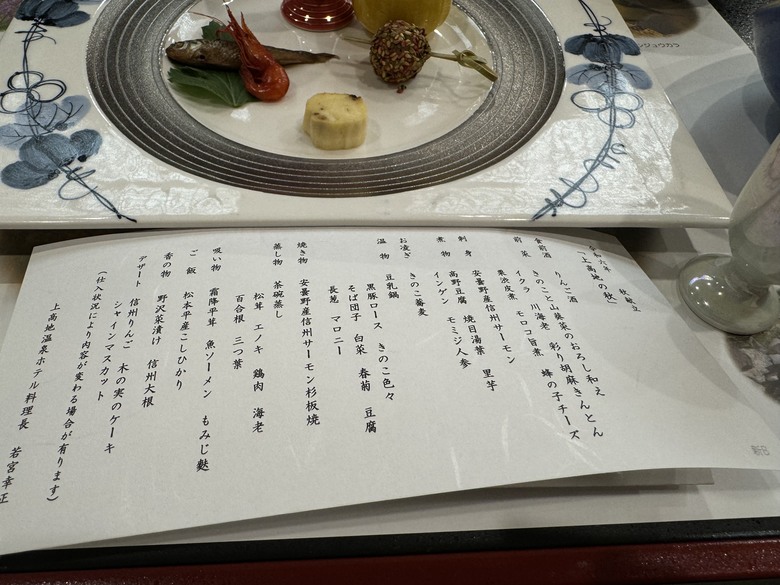 令和六年 秋献立
「上高地の秋」
食前酒 りんご酒
前菜 きのこと山葵菜のおろし和え
イクラ 川海老 彩り胡麻きんとん
栗渋皮煮 モロコ旨煮 蜂の子チーズ
刺身 安曇野産信州サーモン
煮物 高野豆腐 焼目湯葉 里芋
インゲン モミジ人参
お凌ぎ きのこ蕎麦
温物 豆乳鍋
黒豚ロース きのこ色々
そば団子 白菜 春菊 豆腐
長葱 マロニー
焼き物 安曇野産信州サーモン杉板焼
蒸し物 茶碗蒸し
松茸 エノキ 鶏肉 海老
百合根 三つ葉
吸い物 霜降平茸 魚ソーメン もみじ麩
ご飯 松本平産こしひかり
香の物 野沢菜漬け 信州大根
デザート 信州りんご 木の実のケーキ
シャインマスカット
(仕入状況により内容が変わる場合が有ります)
上高地温泉ホテル料理長 若宮幸正